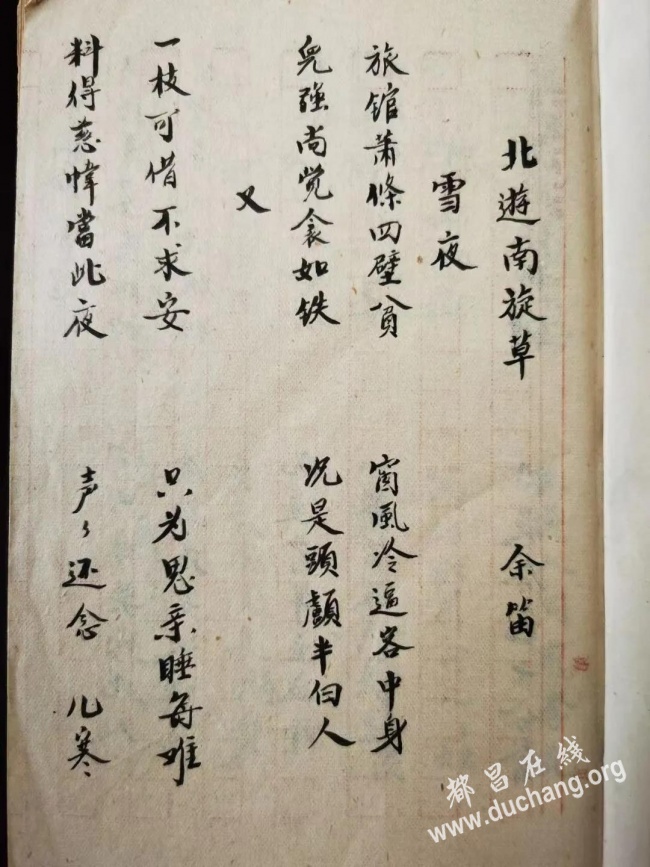 北遊南旋草 余笛
雪夜
旅館蕭條四壁貧 窗風冷逼客中身
兒強尚覺衾如铁 况是頭顱半白人
又
一枝可借不求安 只为思亲睡每难
料得慈幃當此夜 声々还念儿寒
都昌在线
www.duchang.org